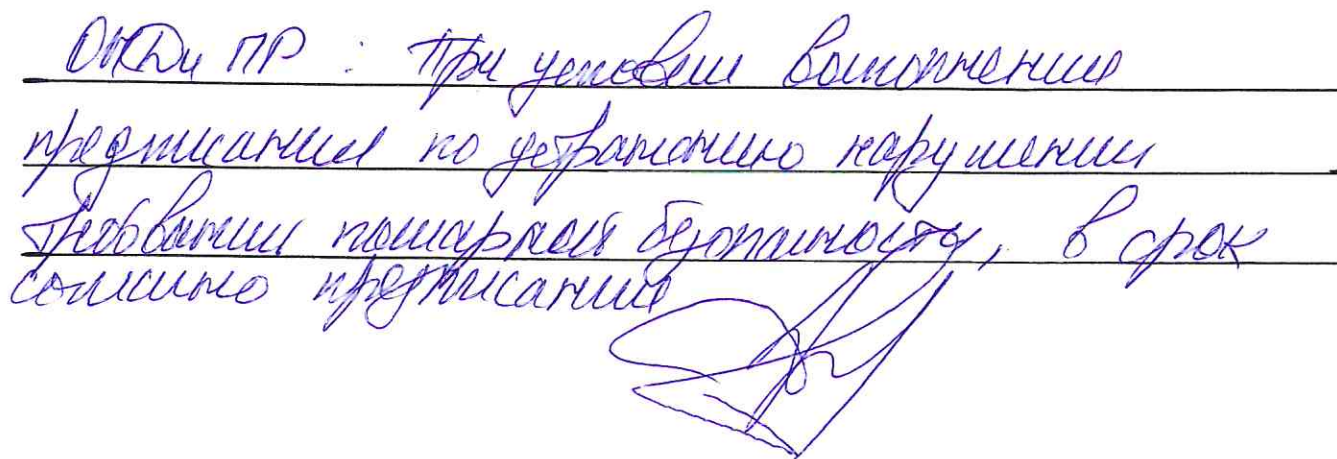 ОНДи ПР : При условии выполнении
предписания по устранению нарушении
требовании пожарной безопасности, в срок
согласно предписания